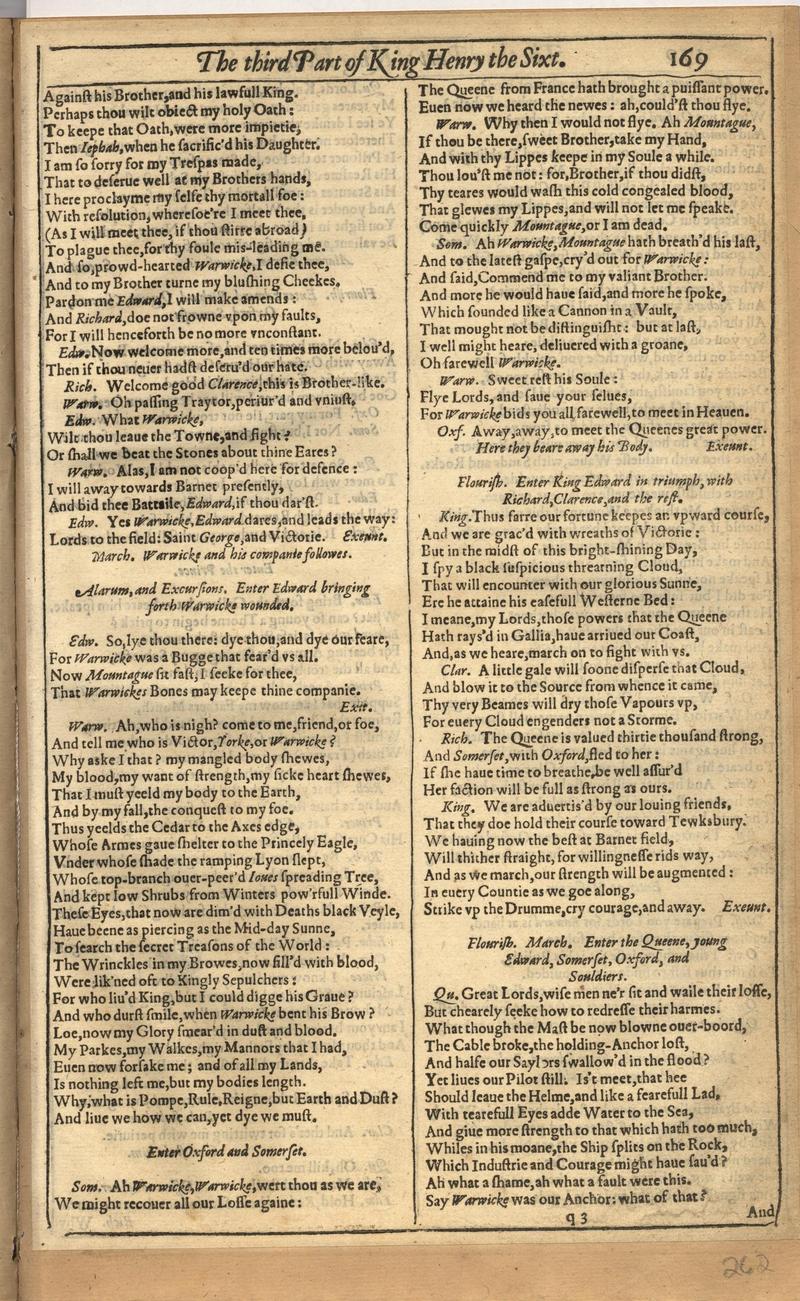 The third Part of King Henry the Sixt. 169
Againſt his Brother,and his lawfull King.
Perhaps thou wilt obiect my holy Oath:
To keepe that Oath,were more impietie,
Then Iephah,when he ſacrific'd his Daughter.
I am ſo ſorry for my Treſpas made,
That to deſerue well at my Brothers hands,
I here proclayme my ſelfe thy mortall foe:
With reſolution, whereſoe're I meet thee,
(As I will meet thee, if thou ſtirre abroad)
To plague thee,for thy foule mis-leading me.
And ſo,prowd-hearted Warwicke,I defie thee,
And to my Brother turne my bluſhing Cheekes.
Pardon me Edward,I will make amends:
And Richard,doe not frowne vpon my faults,
For I will henceforth be no more vnconſtant.
Edw. Now welcome more,and ten times more belou'd,
Then if thou neuer hadſt deſeru'd our hate.
Rich. Welcome good Clarence,this is Brother-like.
Warw. Oh paſſing Traytor,periur'd and vniuſt.
Edw. What Warwicke,
Wilt thou leaue the Towne,and fight?
Or ſhall we beat the Stones about thine Eares?
Warw. Alas,I am not coop'd here for defence:
I will away towards Barnet preſently,
And bid thee Battaile,Edward,if thou dar'ſt.
Edw. Yes Warwicke,Edward dares,and leads the way:
Lords to the field: Saint George,and Victorie. Exeunt.
March. Warwicke and his companie followes.
Alarum,and Excurſions. Enter Edward bringing
forth Warwicke wounded.
Edw. So,lye thou there: dye thou,and dye our feare,
For Warwicke was a Bugge that fear'd vs all.
Now Mountague ſit faſt,I ſeeke for thee,
That Warwickes Bones may keepe thine companie.
Exit.
Warw. Ah,who is nigh? come to me,friend,or foe,
And tell me who is Victor,Yorke,or Warwicke?
Why aske I that? my mangled body ſhewes,
My blood,my want of ſtrength,my ſicke heart ſhewes,
That I muſt yeeld my body to the Earth,
And by my fall,the conqueſt to my foe.
Thus yeelds the Cedar to the Axes edge,
Whoſe Armes gaue ſhelter to the Princely Eagle,
Vnder whoſe ſhade the ramping Lyon ſlept,
Whoſe top-branch ouer-peer'd Ioues ſpreading Tree,
And kept low Shrubs from Winters pow'rfull Winde.
Theſe Eyes,that now are dim'd with Deaths black Veyle,
Haue beene as piercing as the Mid-day Sunne,
To ſearch the ſecret Treaſons of the World:
The Wrinckles in my Browes,now fill'd with blood,
Were lik'ned oft to Kingly Sepulchers:
For who liu'd King,but I could digge his Graue?
And who durſt ſmile,when Warwicke bent his Brow?
Loe,now my Glory ſmear'd in duſt and blood.
My Parkes,my Walkes,my Mannors that I had,
Euen now forſake me; and of all my Lands,
Is nothing left me,but my bodies length.
Why,what is Pompe,Rule,Reigne,but Earth and Duſt?
And liue we how we can,yet dye we muſt.
Enter Oxford and Somerſet.
Som. Ah Warwicke,Warwicke,wert thou as we are,
We might recouer all our Loſſe againe:
The Queene from France hath brought a puiſſant power.
Euen now we heard the newes: ah,could'ſt thou flye.
Warw. Why then I would not flye. Ah Mountague,
If thou be there,ſweet Brother,take my Hand,
And with thy Lippes keepe in my Soule a while.
Thou lou'ſt me not: for,Brother,if thou didſt,
Thy teares would waſh this cold congealed blood,
That glewes my Lippes,and will not let me ſpeake.
Come quickly Mountague,or I am dead.
Som. Ah Warwicke,Mountague hath breath'd his laſt,
And to the lateſt gaſpe,cry'd out for Warwicke:
And ſaid,Commend me to my valiant Brother.
And more he would haue ſaid,and more he ſpoke,
Which ſounded like a Cannon in a Vault,
That mought not be diſtinguiſht: but at laſt,
I well might heare, deliuered with a groane,
Oh farewell Warwicke.
Warw. Sweet reſt his Soule:
Flye Lords, and ſaue your ſelues,
For Warwicke bids you all farewell,to meet in Heauen.
Oxf. Away,away,to meet the Queenes great power.
Here they beare away his Body. Exeunt.
Flouriſh. Enter King Edward in triumph, with
Richard,Clarence,and the reſt.
King.Thus farre our fortune keepes an vpward courſe,
And we are grac'd with wreaths of Victorie:
But in the midſt of this bright-ſhining Day,
I ſpy a black ſuſpicious threatning Cloud,
That will encounter with our glorious Sunne,
Ere he attaine his eaſefull Weſterne Bed:
I meane,my Lords,thoſe powers that the Queene
Hath rays'd in Gallia,haue arriued our Coaſt,
And,as we heare,march on to fight with vs.
Clar. A little gale will ſoone diſperſe that Cloud,
And blow it to the Source from whence it came,
Thy very Beames will dry thoſe Vapours vp,
For euery Cloud engenders not a Storme.
Rich. The Queene is valued thirtie thouſand ſtrong,
And Somerſet,with Oxford,fled to her:
If ſhe haue time to breathe,be well aſſur'd
Her faction will be full as ſtrong as ours.
King. We are aduertis'd by our louing friends,
That they doe hold their courſe toward Tewksbury.
We hauing now the beſt at Barnet field,
Will thither ſtraight, for willingneſſe rids way,
And as we march,our ſtrength will be augmented:
In euery Countie as we goe along,
Strike vp the Drumme,cry courage,and away. Exeunt.
Flouriſh. March. Enter the Queene, young
Edward, Somerſet, Oxford, and
Souldiers.
Qu. Great Lords,wiſe men ne'r ſit and waile their loſſe,
But chearely ſeeke how to redreſſe their harmes.
What though the Maſt be now blowne ouer-boord,
The Cable broke,the holding-Anchor loſt,
And halfe our Saylors ſwallow'd in the flood?
Yet liues our Pilot ſtill. Is't meet,that hee
Should leaue the Helme,and like a fearefull Lad,
With tearefull Eyes adde Water to the Sea,
And giue more ſtrength to that which hath too much,
Whiles in his moane,the Ship ſplits on the Rock,
Which Induſtrie and Courage might haue ſau'd?
Ah what a ſhame,ah what a fault were this.
Say Warwicke was our Anchor: what of that?
q 3 And
262